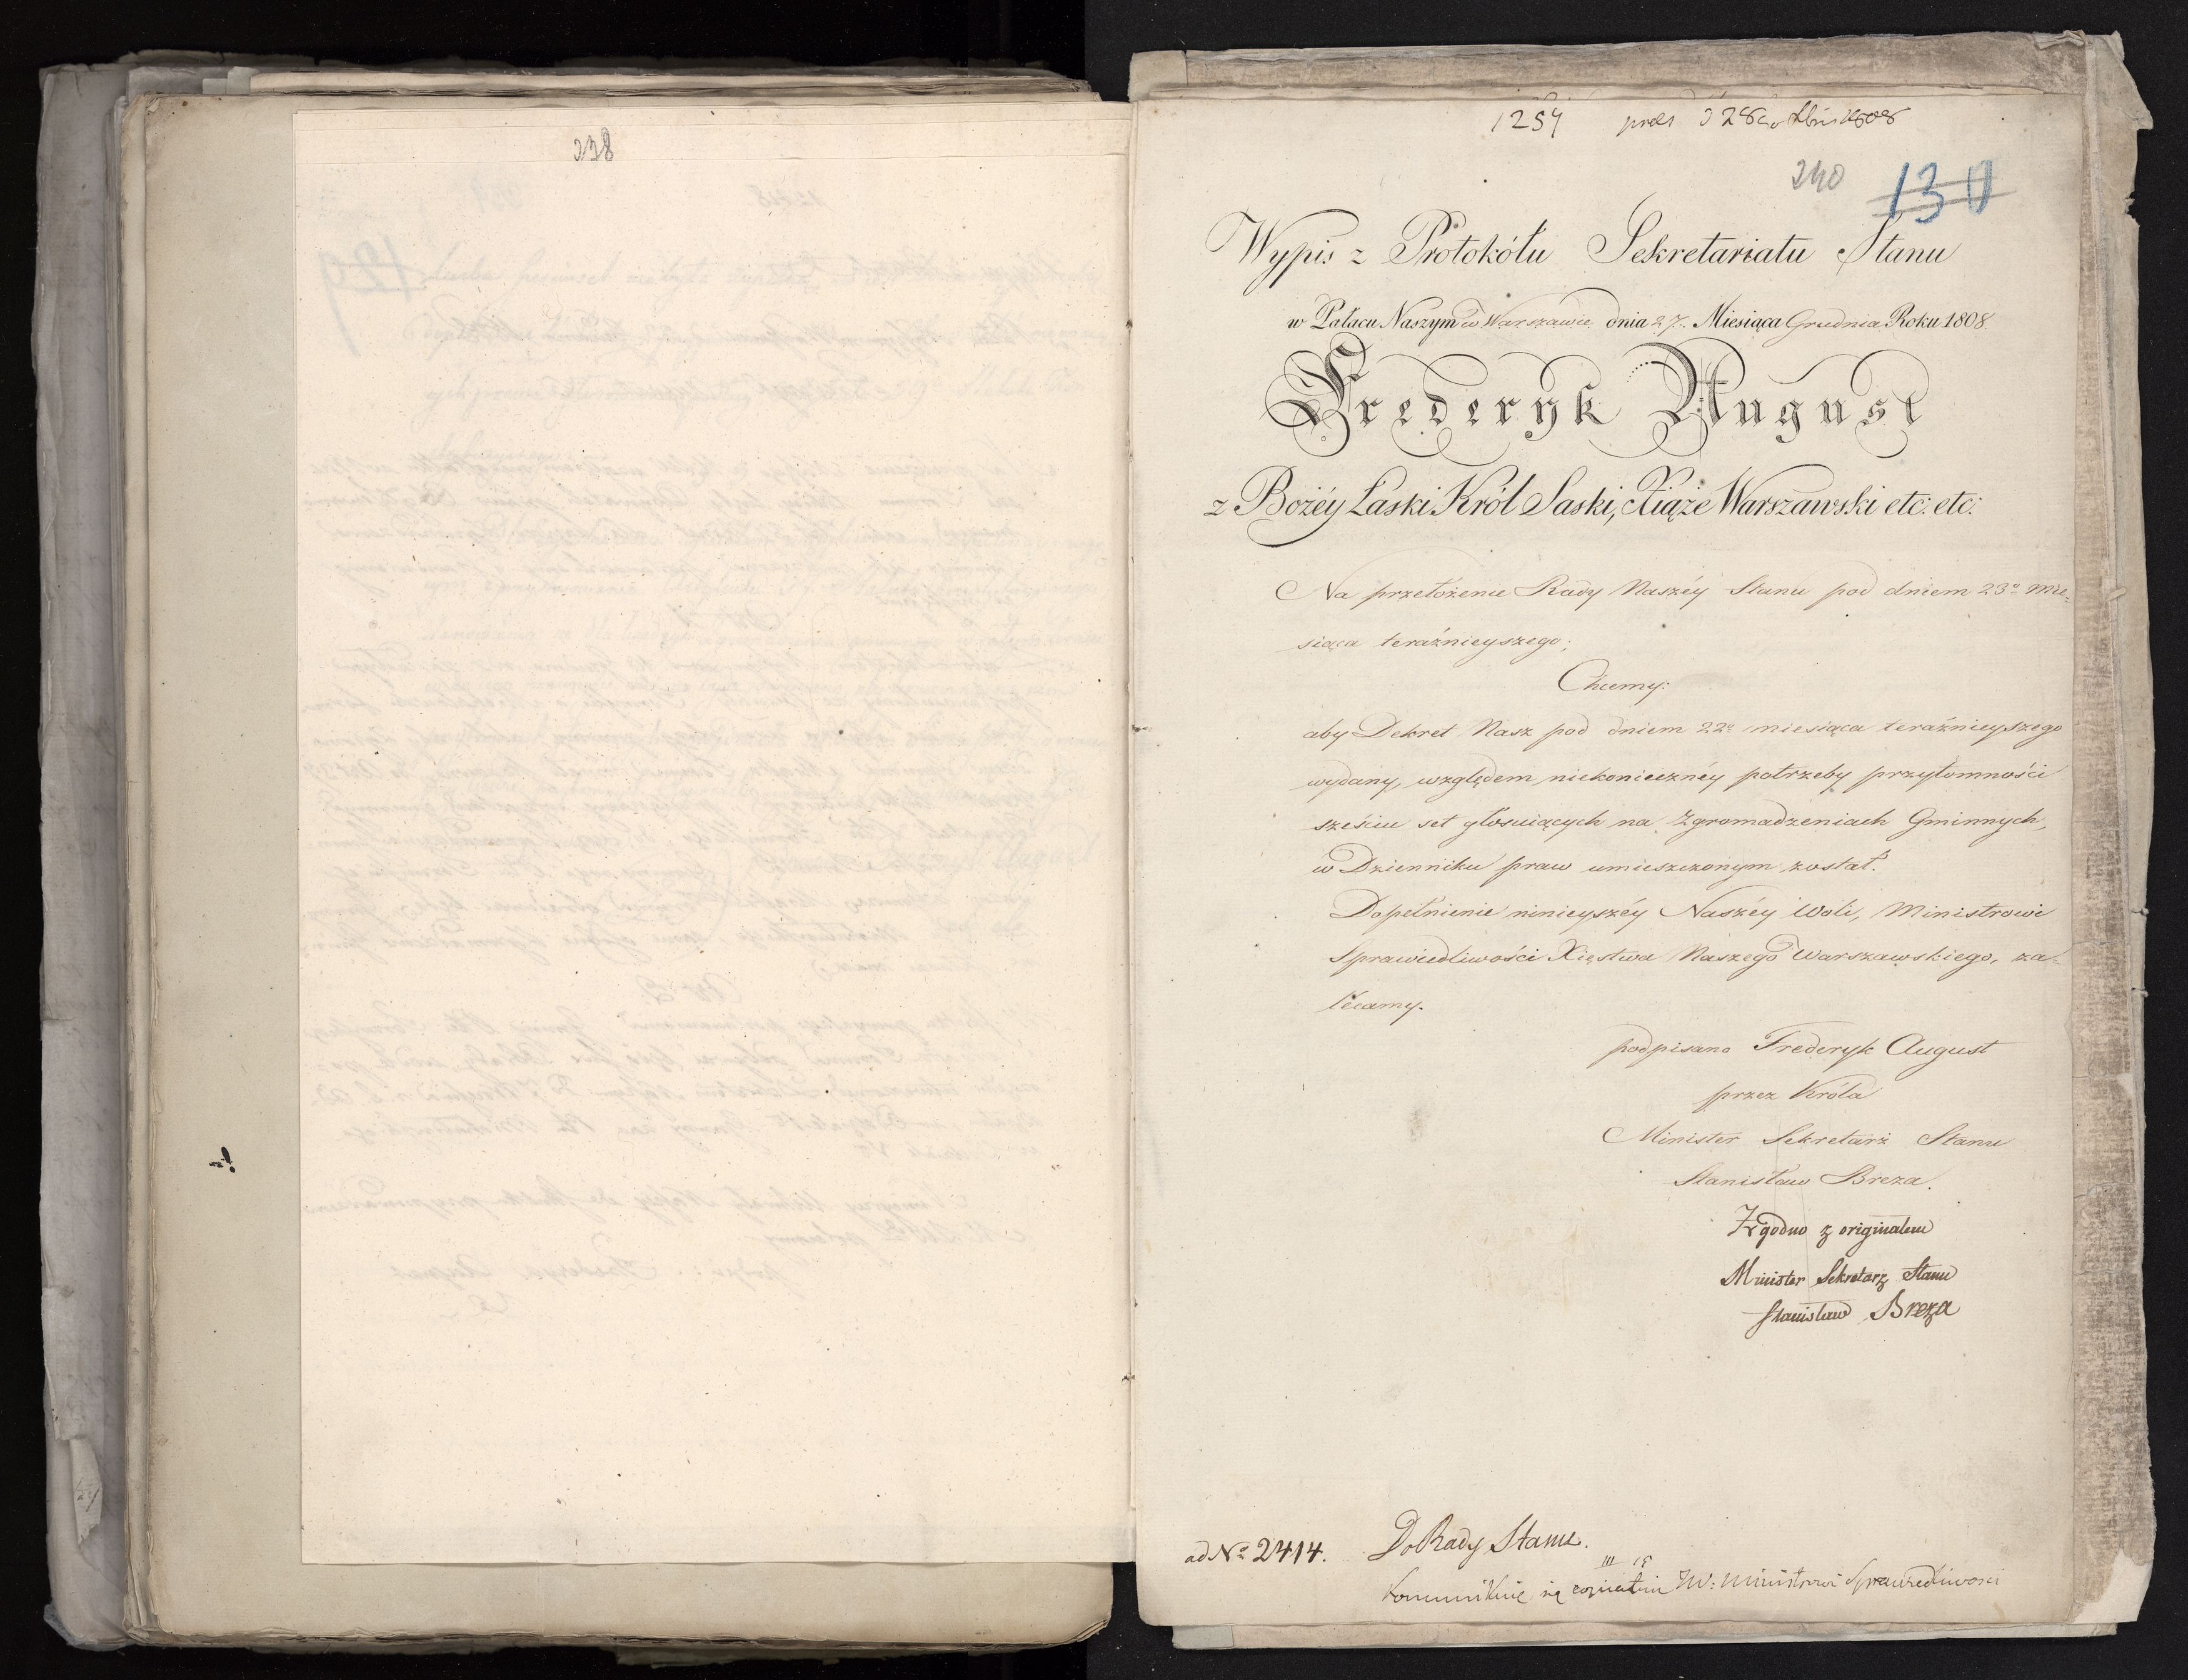 238
1254 d 28
240 130
Wypis z Protokółu Sekretariatu Stanu
w Pałacu Naszym w Warszawie dnia 27. Miesiąca Grudnia Roku 1808
Frederyk August
z Bożéy Łaski Król Saski, Xiąże Warszawski etc: etc:
Na przełożenie Rady Naszéy Stanu pod dniem 23º Mie=
siąca teraźnieyszego;
Chcemy:
aby Dekret Nasz pod dniem 22º miesiąca teraźnieyszego
wydany, względem niekonieczney potrzeby przytomności
sześciu set głosuiących na Zgromadzeniach Gminnych,
w Dzienniku praw umieszczonym został.
Dopełnienie ninieyszéy Naszéy Woli, Ministrowi
Sprawiedliwości Xięstwa Naszego Warszawskiego, za=
lecamy.
podpisano Frederyk August
przez Króla
Minister Sekretarz Stanu
Stanisław Breza.
Zgodno z originałem
Minister Sekretarz Stanu
Stanisław Breza
ad Nº 2414. Do Rady Stanu.
Kommunikuie się JW: Ministrowi Sprawiedliwosci